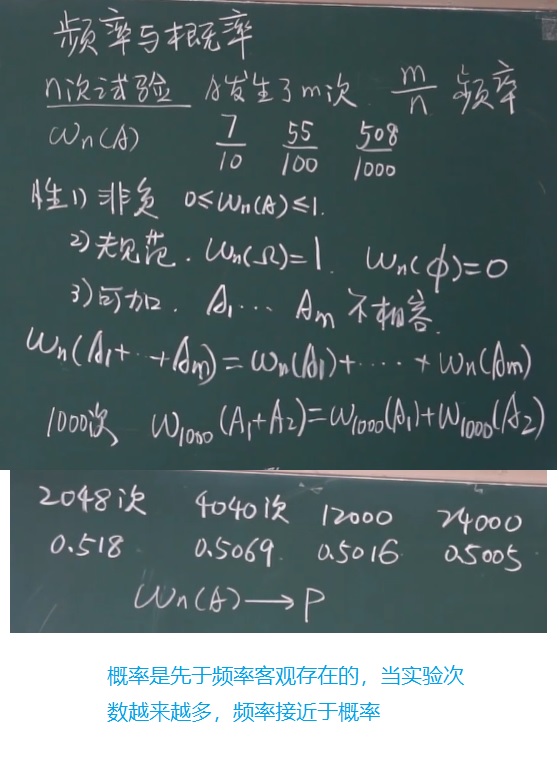 频率与概率
n次试验 A发生了m次 m/n 频率
Wn(A) 7/10 55/100 508/1000
性1) 非负 0≤Wn(A)≤1.
2) 规范. Wn(Ω)=1. Wn(φ)=0
3) 可加. A1… Am 不相容.
Wn(A1+‥+Am)=Wn(A1)+‥‥+Wn(Am)
1000次 W1000(A1+A2)=W1000(A1)+W1000(A2)
2048次 4040次 12000 24000
0.518 0.5069. 0.5016 0.5005
Wn(A)→P
概率是先于频率客观存在的，当实验次
数越来越多，频率接近于概率